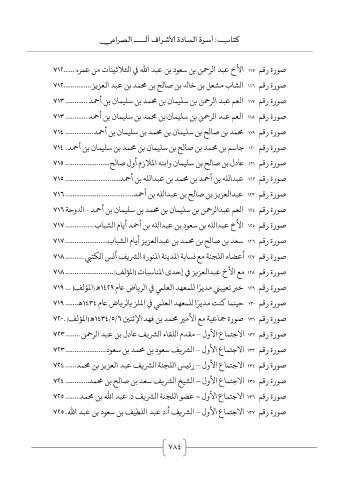 كتاب: أسرة السادة الأشراف آل الصرامي
صورة رقم ١١٥ الأخ عبد الرحمن بن سعود بن عبد الله في الثلاثينات من عمره ......٧١٢
صورة رقم ١١٦ الشاب مشعل بن خالد بن صالح بن محمد بن عبد العزيز...............٧١٢
صورة رقم ١١٧ العم عبد الرحمن بن سليمان بن محمد بن سليمان بن أحمد ............ ٧١٣
صورة رقم ١١٨ العم عبد الرحمن بن سليمان بن محمد بن سليمان بن أحمد............ ٧١٣
صورة رقم ١١٩ محمد بن صالح بن سليمان بن محمد بن سليمان بن أحمد ............... ٧١٤
صورة رقم ١٢٠ جاسم بن محمد بن صالح بن سليمان بن محمد بن سليمان بن أحمد. ٧١٤
صورة رقم ١٢١ عادل بن صالح بن سليمان وابنه الملازم أول صالح....................... ٧١٥
صورة رقم ١٢٢ عبدالله بن أحمد بن محمد بن عبدالله بن أحمد............................ ٧١٥
صورة رقم ١٢٣ عبدالعزيز بن صالح بن عبدالله بن أحمد................................... ٧١٦
صورة رقم ١٢٤ العم عبدالرحمن بن سليمان بن محمد بن سليمان بن أحمد - الدوحة ٧١٦
صورة رقم ١٢٥ الأخ عبدالله بن سعود بن عبدالله بن أحمد أيام الشباب...............٧١٧
صورة رقم ١٢٦ سعد بن صالح بن محمد بن عبدالعزيز أيام الشباب.....................٧١٧
صورة رقم ١٢٧ أعضاء اللجنة مع نسابة المدينة المنورة الشريف أنس الكتبي ......... ٧١٨
صورة رقم ١٢٨ مع الأخ عبدالعزيز في إحدى المناسبات (المؤلف).......................٧١٨
صورة رقم ١٢٩ خبر تعييني مديرًا للمعهد العلمي في الرياض عام ١٤٢٩هـ(المؤلف) ... ٧١٩
صورة رقم ١٣٠ حينما كنت مديرًا للمعهد العلمي في الملز بالرياض عام ١٤٣٤هـ....... ٧١٩
صورة رقم ١٣١ صورة جماعية مع الأمير محمد بن فهد الإثنين ١٤٣٤/٥/٦هـ(المؤلف) .. ٧٢٠
صورة رقم ١٣٢ الاجتماع الأول - مقدم اللقاء الشريف عادل بن عبد الرحمن ....... ٧٢٣
صورة رقم ١٣٣ الاجتماع الأول - الشريف سعود بن محمد بن سعود...................... ٧٢٣
صورة رقم ١٣٤ الاجتماع الأول - رئيس اللجنة الشريف عبد العزيز بن محمد...... ٧٢٤
صورة رقم ١٣٥ الاجتماع الأول - الشيخ الشريف سعد بن صالح بن محمد............. ٧٢٤
صورة رقم ١٣٦ الاجتماع الأول - عضو اللجنة الشريف د. عبد الله بن محمد........ ٧٢٥
صورة رقم ١٣٧ الاجتماع الأول - الشريف أ.د عبد اللطيف بن سعود بن عبد الله. ٧٢٥
٧٨٤